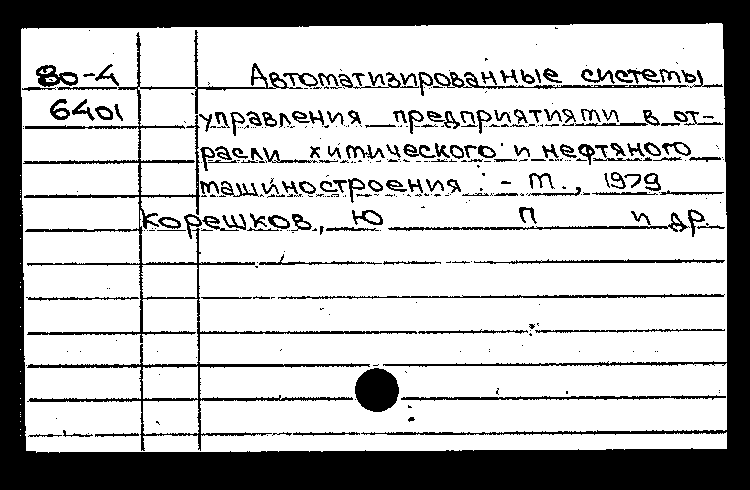 80-4 Автоматизированные системы
6401 управления предприятиями в от-
расли химического и нефтяного
машиностроения. - М., 1979
Корешков, Ю П и др.